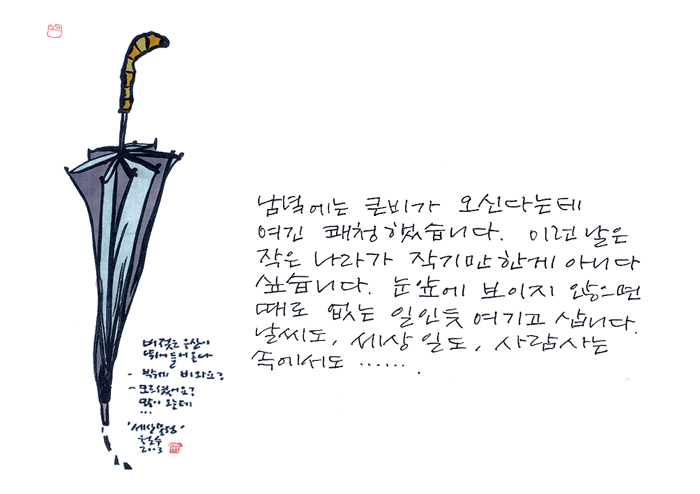 비젖은 우산이
뛰어들어온다
- 밖에 비와요?
- 모르셨어요?
많이 오는데
...
"세상모름"
철수
2003
남녘에는 큰비가 오신다는데
여긴 쾌청했습니다. 이런 날은
작은 나라가 작기만한게 아니다
싶습니다. 눈앞에 보이지 않으면
때로 없는 일인듯 여기고 삽니다.
날씨도, 세상 일도, 사람사는
속에서도 .......